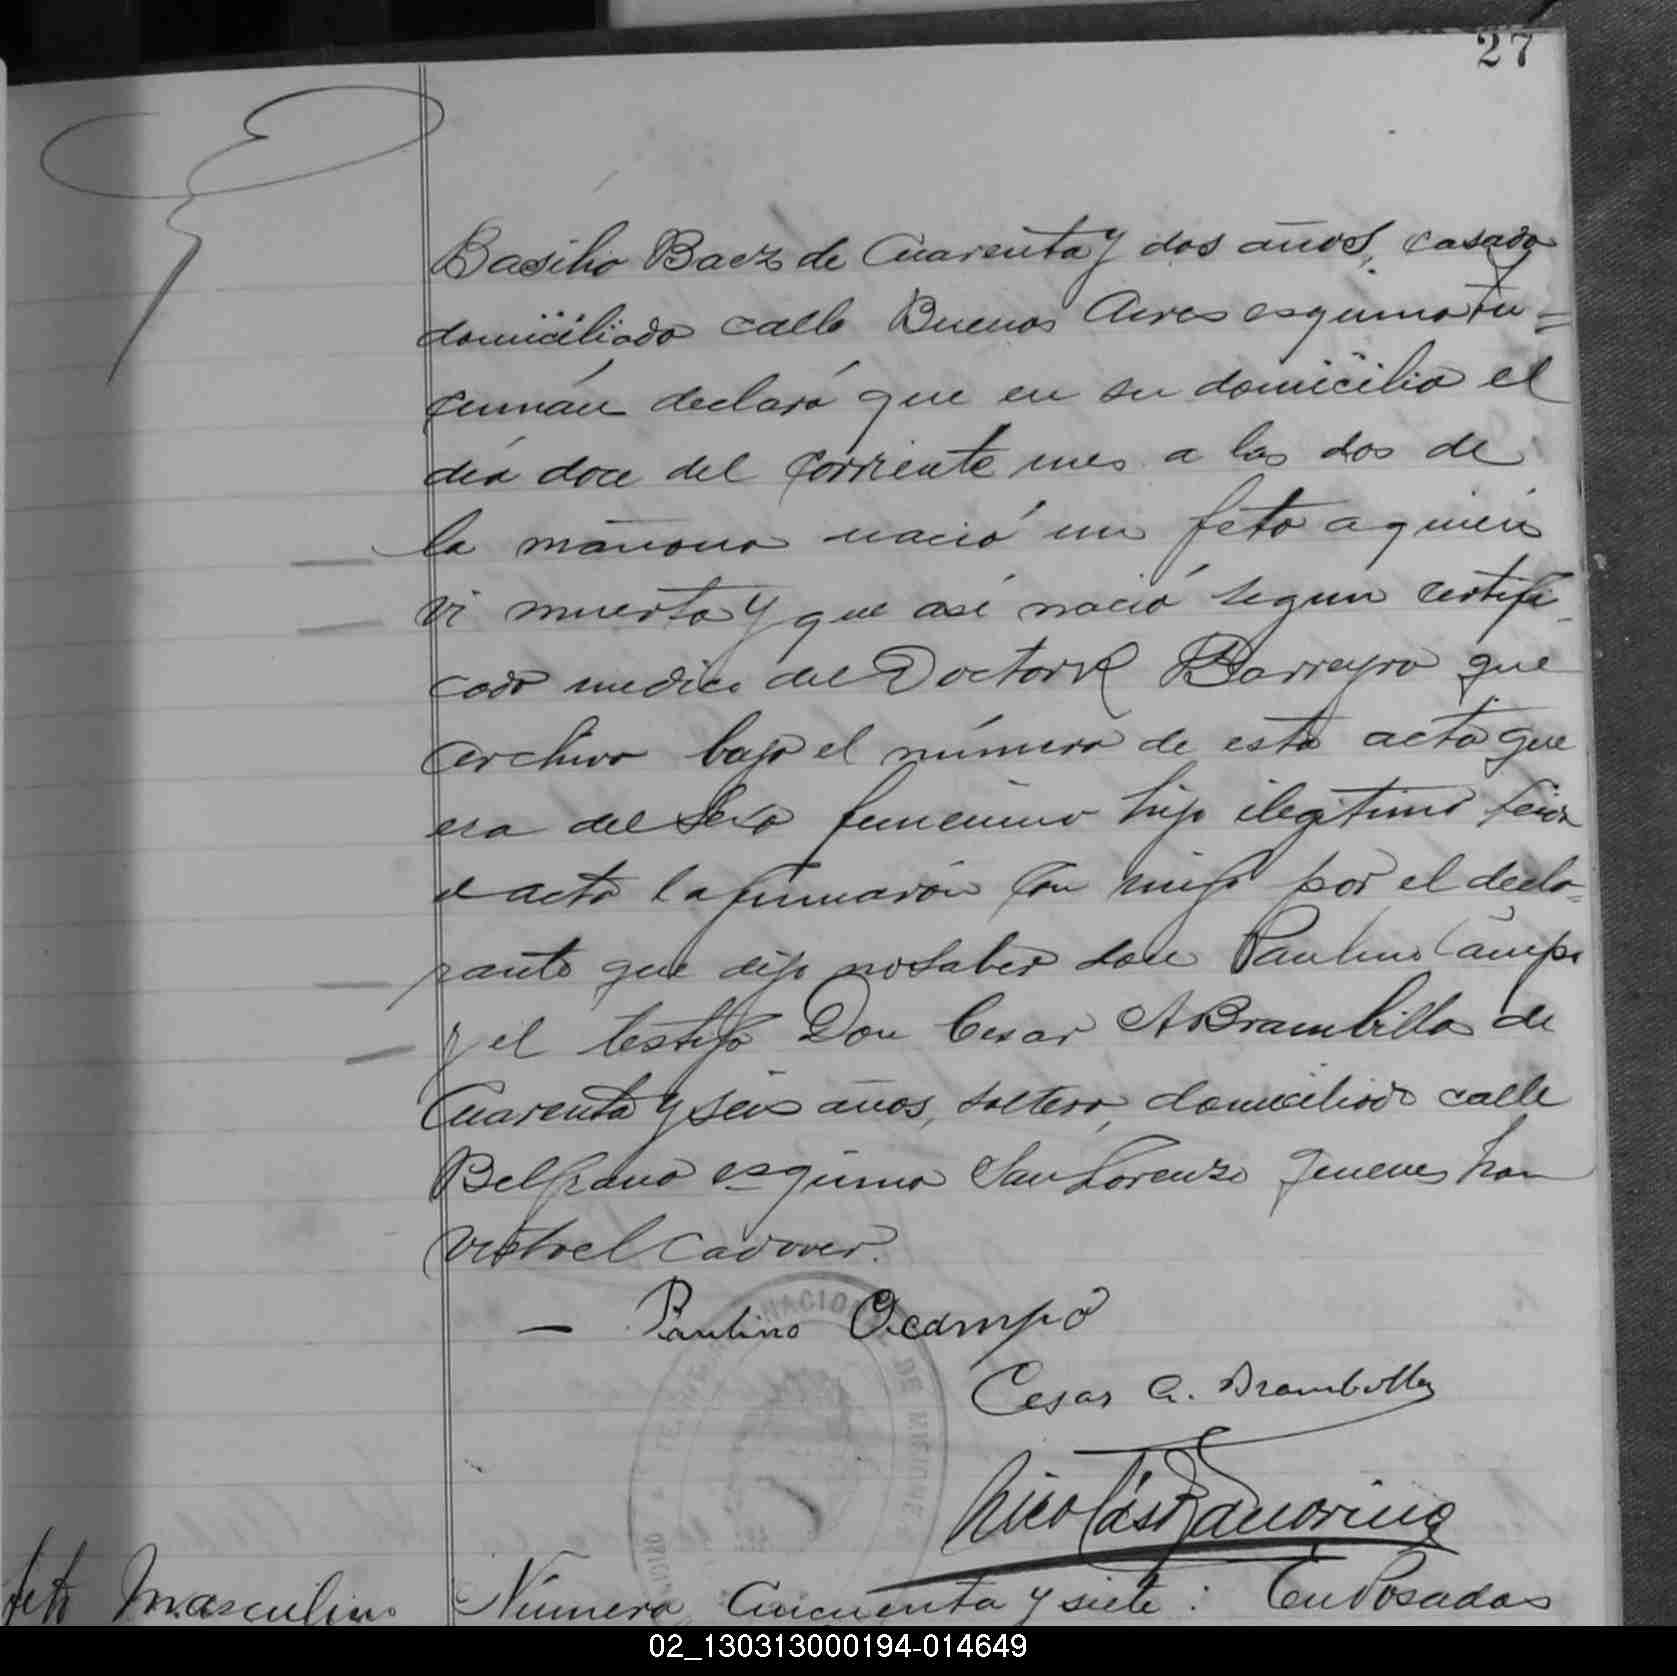 27
Basilio Baez de Cuarenta y dos años, casado
domiciliado calle Buenos Aires esquina tu=
cumán declaró que en su domicilio el
día doce del corriente mes a las dos de
la mañana nació un feto a quien
vi muerto y que así nació segun certifi-
cado medico del Doctor R Barreyro que
archivo bajo el número de esta acta que
era del sexo femenino hijo ilegitimo Leida
el acta la firmarón con migo por el decla=
rante que dijo no saber don Paulino Campo
y el testigo Don Cesar A Brambilla de
Cuarenta y seis años, soltero, domiciliado calle
Belgrano esquina San Lorenzo quienes han
visto el cadaver.
— Paulino Ocampo
Cesar A. Brambilla
Nicolás
NACIONAL DE MISIONES
Feto Masculino Número Cincuenta y siete: En Posadas
02_130313000194-014649